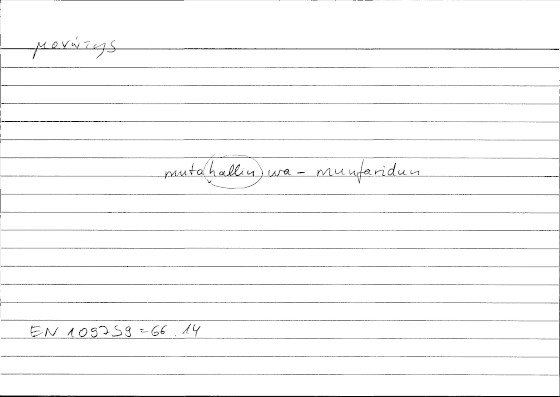 μονώτης
mutahallin wa - munfaridun
EN 1097 59 = 66.14